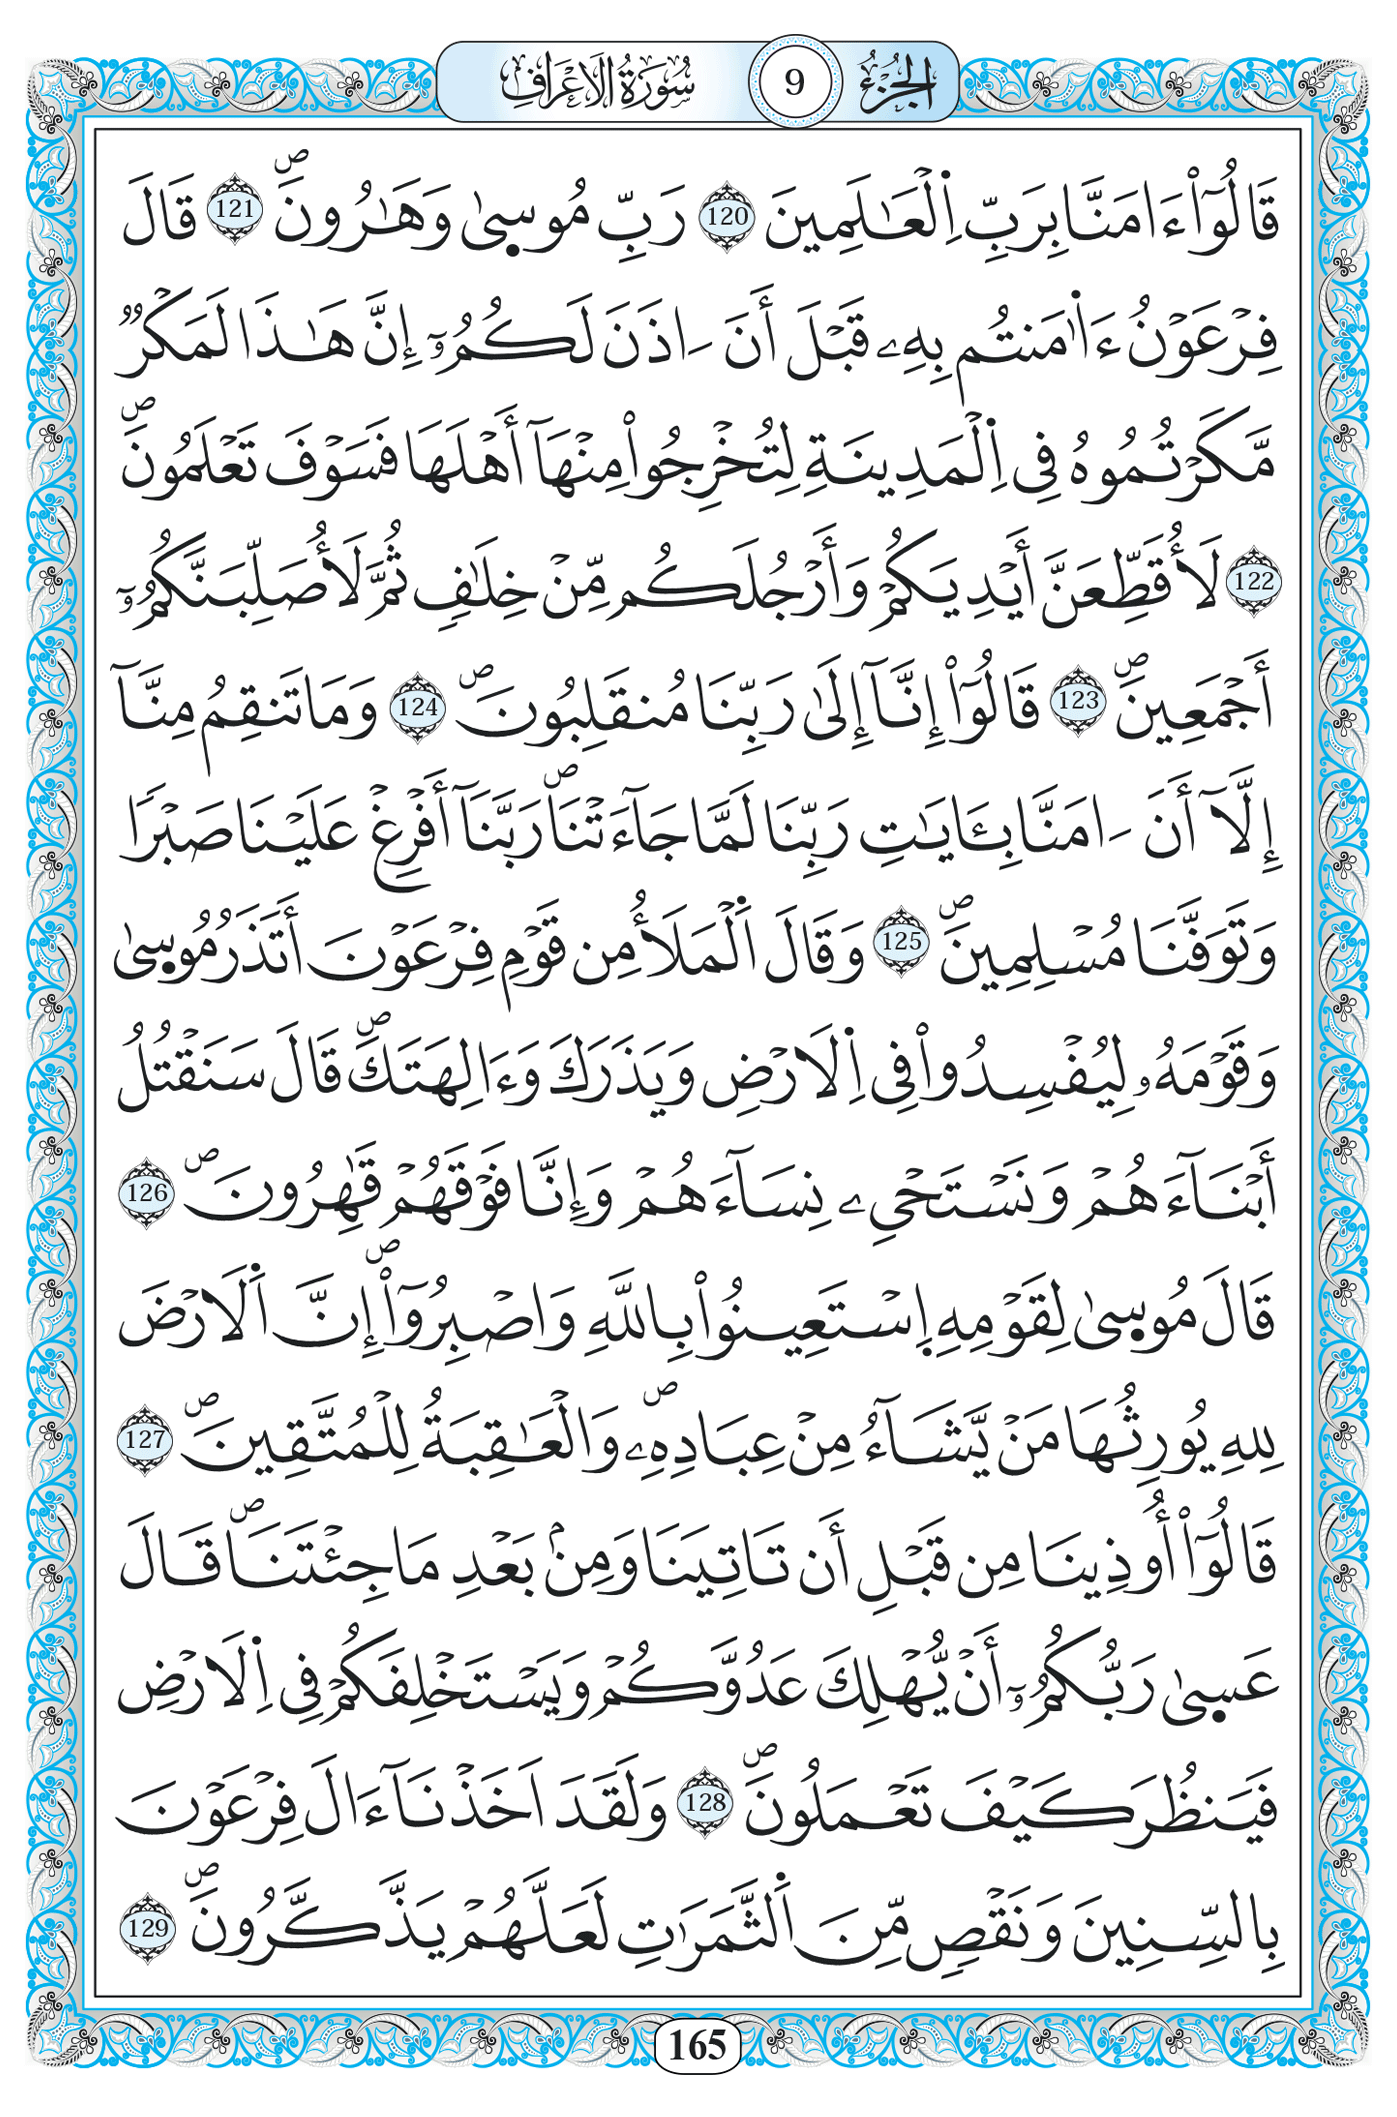 الجُزْءُ 9 سُورَةُ الَاعْرَافِ
قَالُوٓاْ ءَامَنَّا بِرَبِّ اِ۬لْعَٰلَمِينَ 120 رَبِّ مُوس۪يٰ وَهَٰرُونَۖ 121 قَالَ
فِرْعَوْنُ ءَاٰمَنتُم بِهِۦ قَبْلَ أَنَ ـ اذَنَ لَكُمُۥٓ إِنَّ هَٰذَا لَمَكْرٞ
مَّكَرْتُمُوهُ فِى اِ۬لْمَدِينَةِ لِتُخْرِجُواْ مِنْهَآ أَهْلَهَا فَسَوْفَ تَعْلَمُونَۖ
122 لَأُقَطِّعَنَّ أَيْدِيَكُمْ وَأَرْجُلَكُم مِّنْ خِلَٰفٖ ثُمَّ لَأُصَلِّبَنَّكُمُۥٓ
أَجْمَعِينَۖ 123 قَالُوٓاْ إِنَّآ إِلَىٰ رَبِّنَا مُنقَلِبُونَۖ 124 وَمَا تَنقِمُ مِنَّآ
إِلَّآ أَنَ ـ امَنَّا بِـَٔايَٰتِ رَبِّنَا لَمَّا جَآءَتْنَاۖ رَبَّنَآ أَفْرِغْ عَلَيْنَا صَبْرٗا
وَتَوَفَّنَا مُسْلِمِينَۖ 125 وَقَالَ اَ۬لْمَلَأُ مِن قَوْمِ فِرْعَوْنَ أَتَذَرُ مُوس۪يٰ
وَقَوْمَهُۥ لِيُفْسِدُواْ فِى اِ۬لَارْضِ وَيَذَرَكَ وَءَالِهَتَكَۖ قَالَ سَنَقْتُلُ
أَبْنَآءَهُمْ وَنَسْتَحْيِۦ نِسَآءَهُمْ وَإِنَّا فَوْقَهُمْ قَٰهِرُونَۖ 126
قَالَ مُوس۪يٰ لِقَوْمِهِ اِ۪سْتَعِينُواْ بِاللَّهِ وَاصْبِرُوٓاْۖ إِنَّ اَ۬لَارْضَ
لِلهِ يُورِثُهَا مَنْ يَّشَآءُ مِنْ عِبَادِهِۦۖ وَالْعَٰقِبَةُ لِلْمُتَّقِينَۖ 127
قَالُوٓاْ أُوذِينَا مِن قَبْلِ أَن تَاتِيَنَا وَمِنۢ بَعْدِ مَا جِئْتَنَاۖ قَالَ
عَس۪يٰ رَبُّكُمُۥٓ أَنْ يُّهْلِكَ عَدُوَّكُمْ وَيَسْتَخْلِفَكُمْ فِى اِ۬لَارْضِ
فَيَنظُرَ كَيْفَ تَعْمَلُونَۖ 128 وَلَقَدَ اَخَذْنَآ ءَالَ فِرْعَوْنَ
بِالسِّنِينَ وَنَقْصٖ مِّنَ اَ۬لثَّمَرَٰتِ لَعَلَّهُمْ يَذَّكَّرُونَۖ 129
165